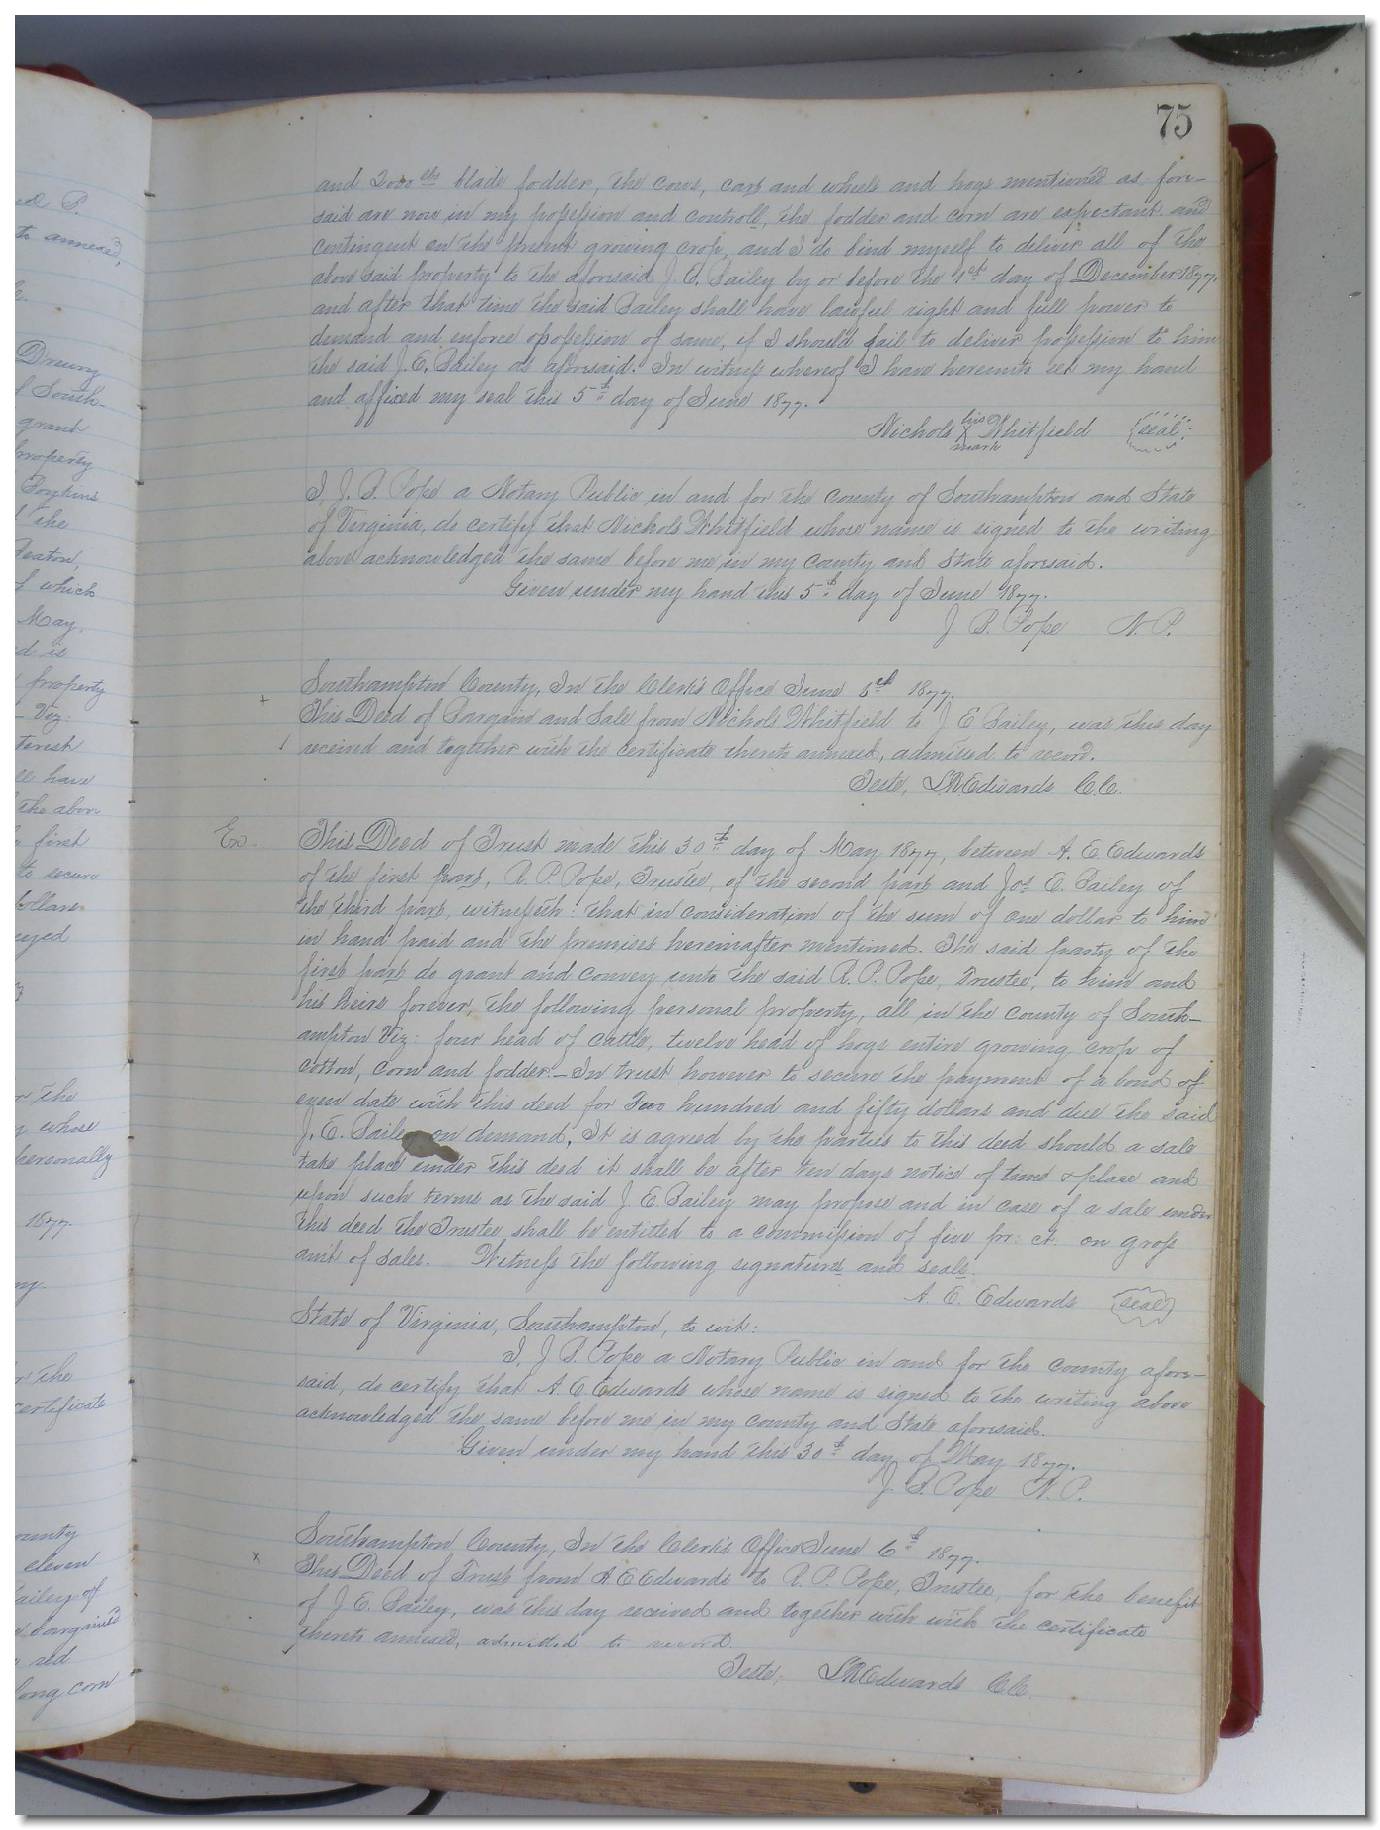 75
and 2000 lbs blade fodder, the cows, cart and wheels and hogs mentioned as fore-
said are now in my possession and controll, the fodder and corn are expectant and
contingent on the present growing crop, and I do bind myself to deliver all of the
above said property to the aforesaid J. E. Bailey by or before the 1st day of December 1877,
and after that time the said Bailey shall have lawful right and full power to
demand and enforce possession of same, if I should fail to deliver possession to him
the said J. E. Bailey as aforesaid. In witness whereof I have hereunto set my hand
and affixed my seal this 5th day of June 1877.
Nichols his X mark Whitfield seal
I, J. B. Pope a Notary Public in and for the county of Southampton and State
of Virginia, do certify that Nichols Whitfield whose name is signed to the writing
above acknowledged the same before me in my county and State aforesaid.
Given under my hand this 5th day of June 1877.
J. B. Pope N. P.
Southampton County, In the Clerk's Office June 5th 1877.
This Deed of Bargain and Sale from Nichols Whitfield to J E Bailey, was this day
receivd and together with the certificate thereto annexed, admitted to record.
Teste, L R Edwards C.C.
Ex.
This Deed of Trust made this 30th day of May 1877, between A. E. Edwards
of the first part, R. P. Pope, Trustee, of the second part and Jos. E. Bailey of
the third part, witnesseth: that in consideration of the sum of one dollar to him
in hand paid and the premises hereinafter mentioned. The said party of the
first part do grant and convey unto the said R. P. Pope, Trustee, to him and
his heirs forever, the following personal property, all in the county of South-
ampton Viz: four head of cattle, twelve head of hogs entire growing crop of
cotton, corn and fodder.—In trust however to secure the payment of a bond of
even date with this deed for Two hundred and fifty dollars and due the said
J. E. Bailey on demand, It is agreed by the parties to this deed should a sale
take place under this deed it shall be after ten days notice of time & place and
upon such terms as the said J. E. Bailey may propose and in case of a sale under
this deed the Trustee shall be entitled to a commission of five pr: ct. on gross
amt of sales. Witness the following signatures and seals.
A. E. Edwards seal
State of Virginia, Southampton, to wit:
I, J. B. Pope a Notary Public in and for the county afore-
said, do certify that A E Edwards whose name is signed to the writing above
acknowledged the same before me in my county and State aforesaid.
Given under my hand this 30th day of May 1877.
J. B. Pope N. P.
Southampton County, In the Clerk's Office June 6th 1877.
This Deed of Trust from A. E Edwards to R. P. Pope, Trustee, for the benefit
of J. E. Bailey, was this day received and together with with the certificate
thereto annexed, admitted to record.
Teste, L R Edwards C.C.